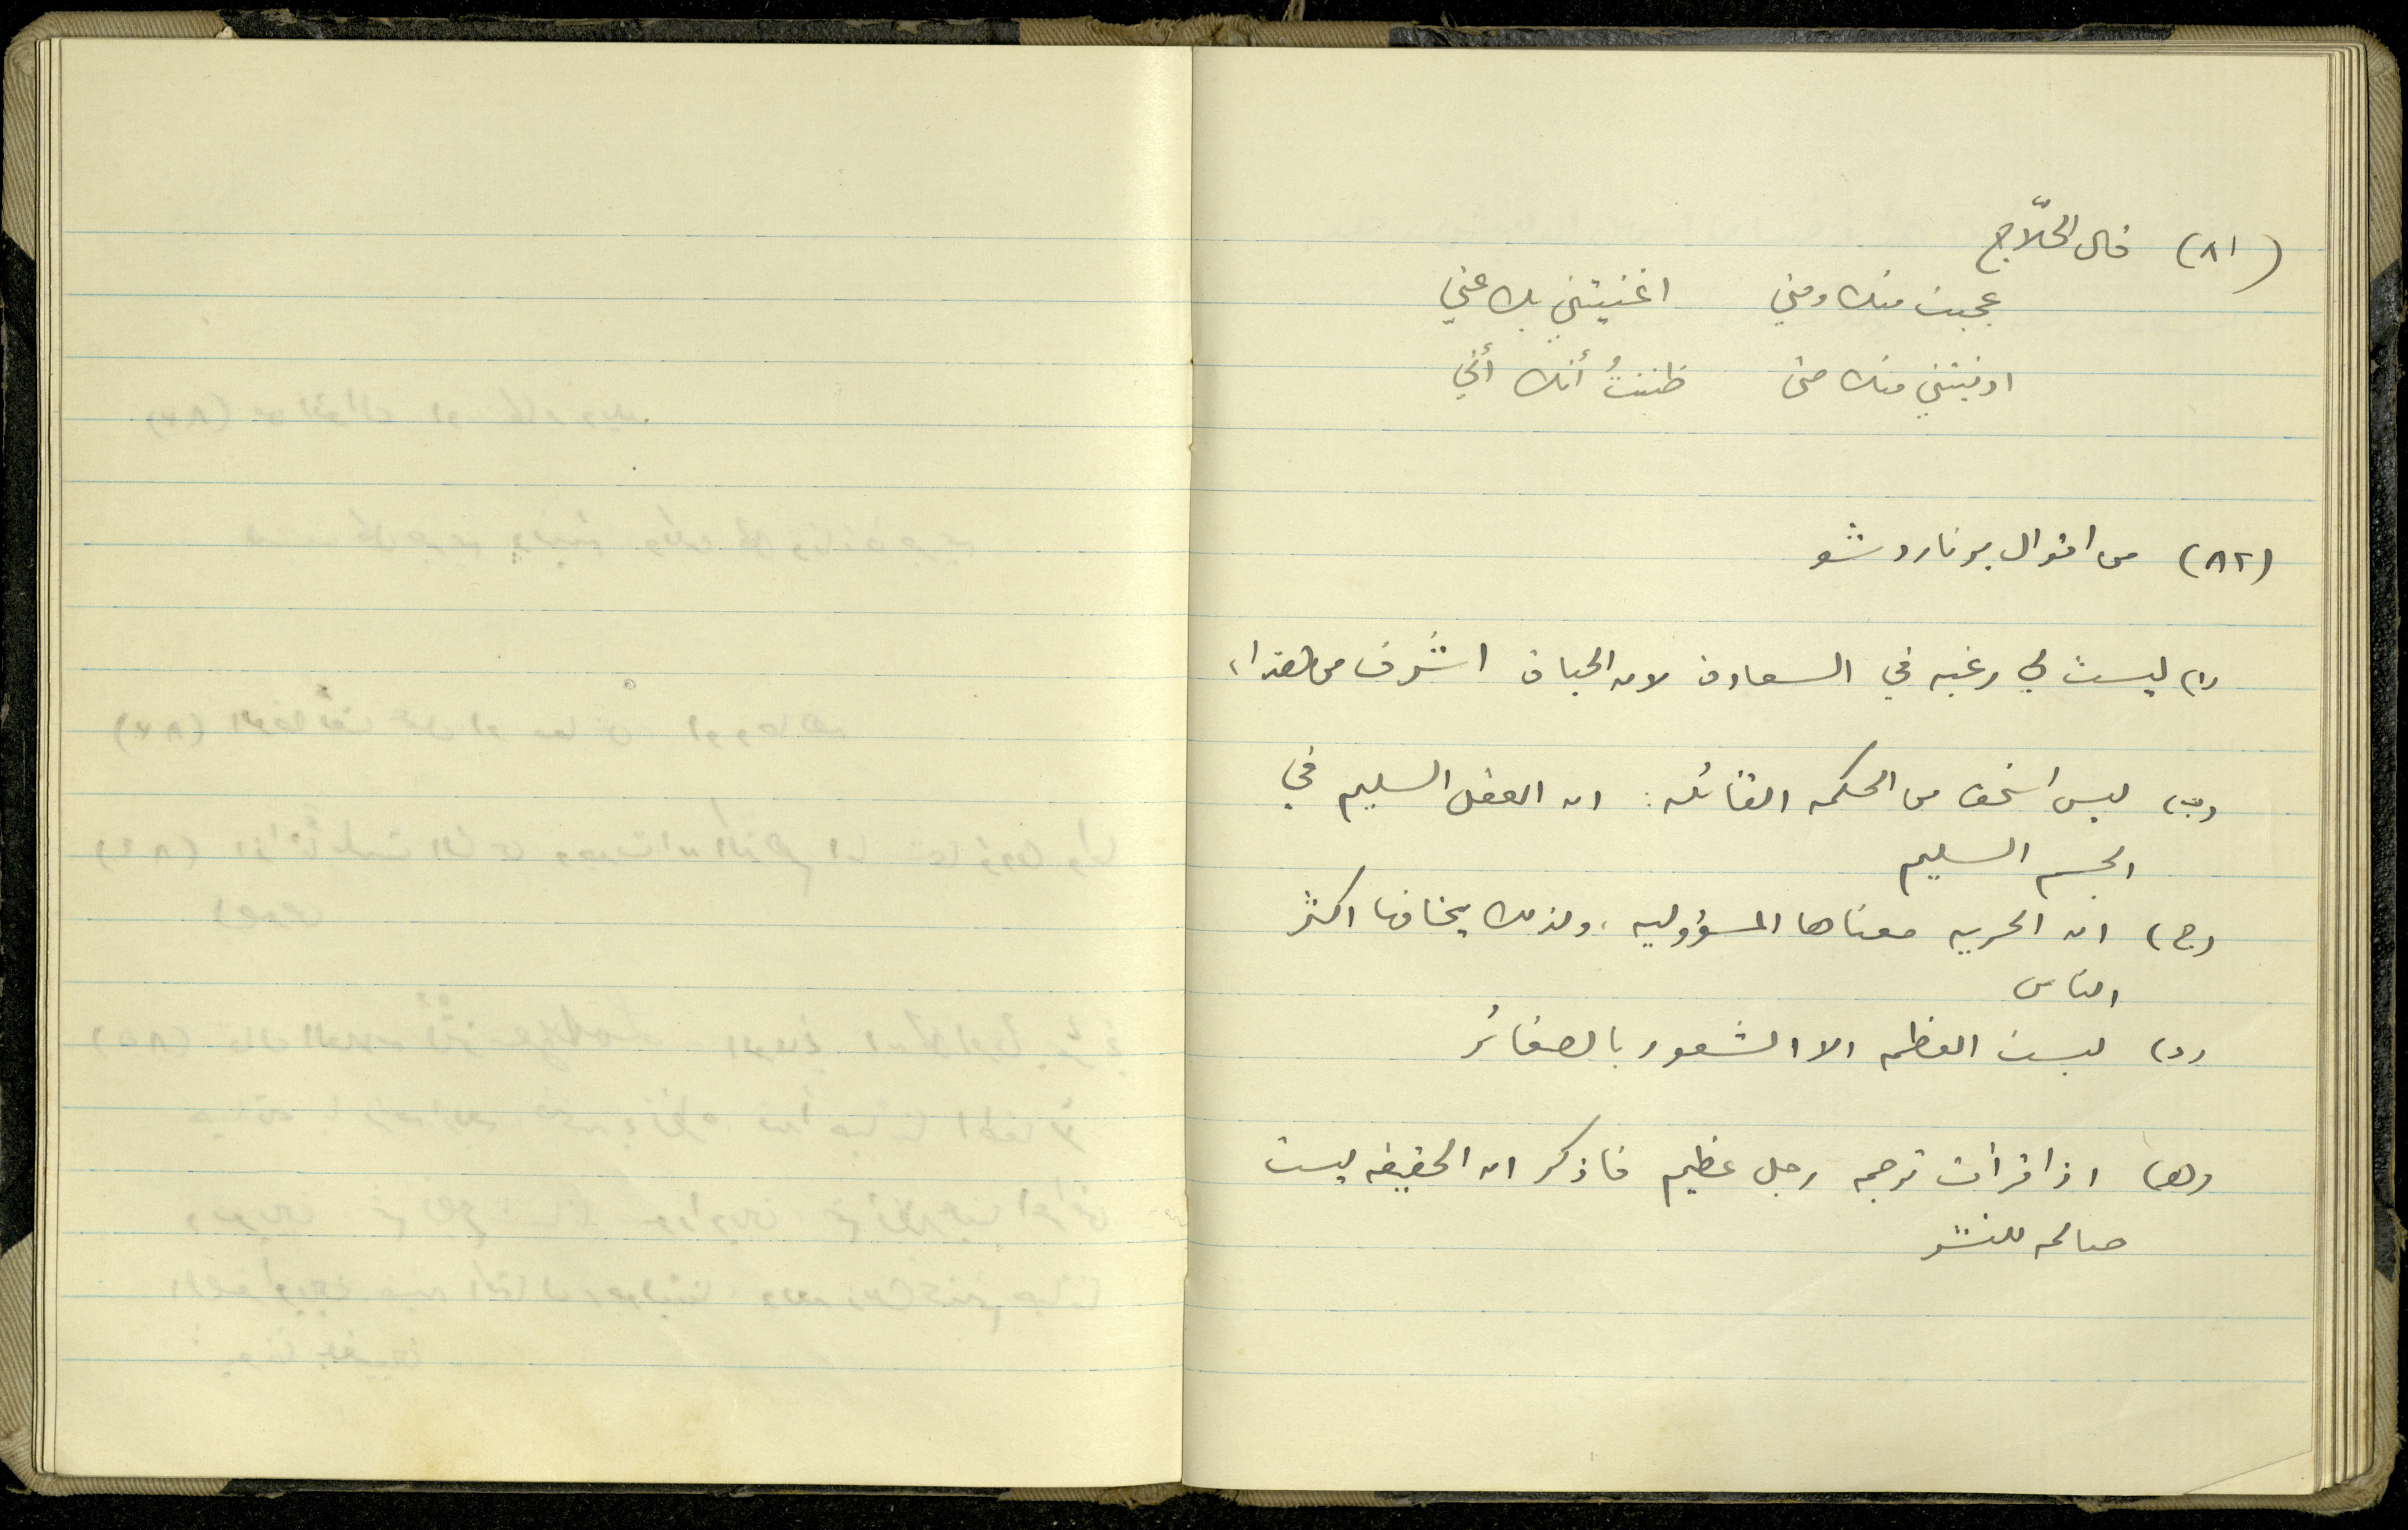 (٨١) قال الحلّاج
عجبت منك ومني اغنيتني بك عني
ادنيتني منك حتى ظننتُ أنك أني
(٨٢) من اقوال برناردشو
(ا) ليست لي رغبه في السعادة لان الحياة اشرف من هذا،
(ب) ليس اسخف من الحكمه القائله: ان العقل السليم في
الجسم السليم
(ج) ان الحريه معناها المسؤوليه، ولذلك يخافها اكثر
الناس
(د) ليست العظمه الا الشعور بالصغائر
(هـ) اذا قرأت ترجمه رجل عظيم فاذكر ان الحقيقه ليست
صالحه للنشر